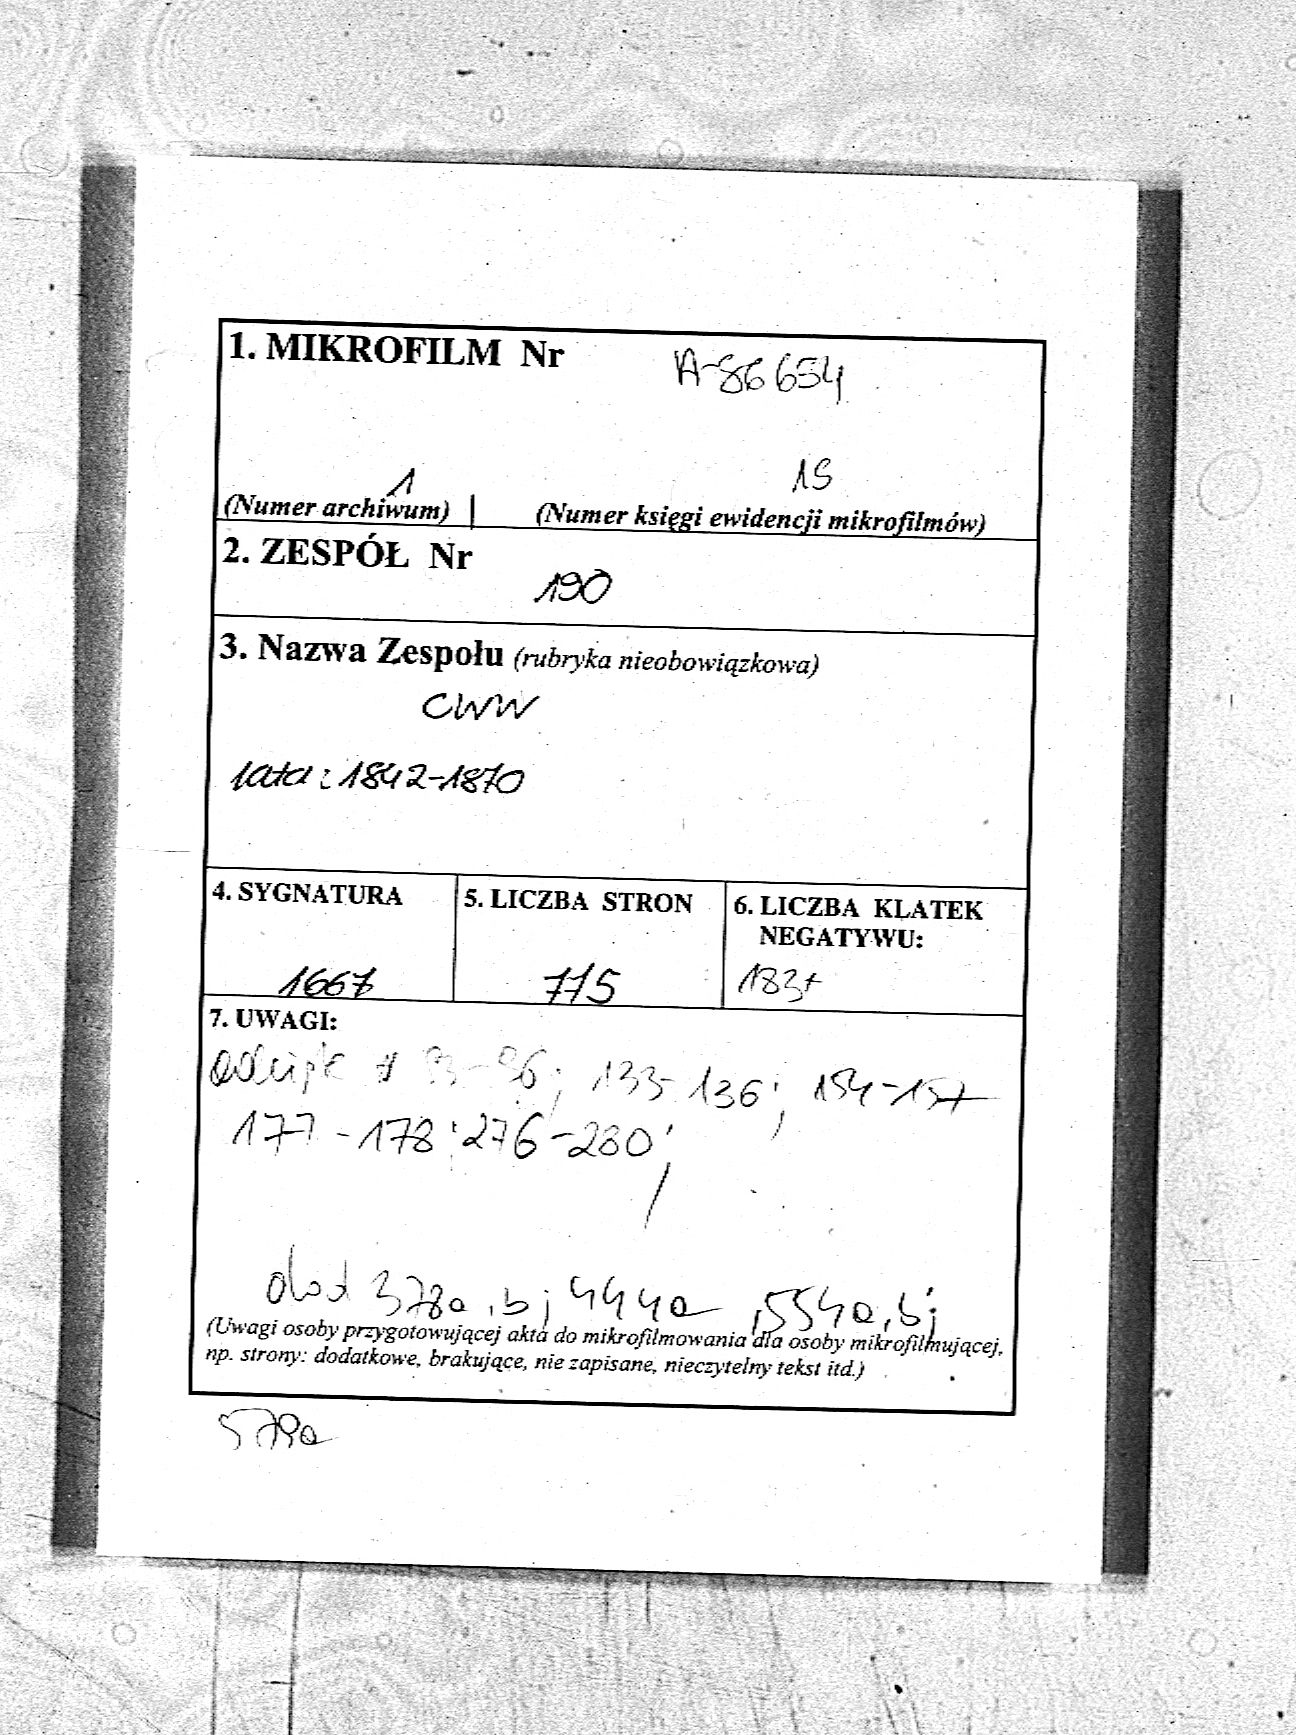 1. MIKROFILM Nr A-86654
1 15
(Numer archiwum) | (Numer księgi ewidencji mikrofilmów)
2. ZESPÓŁ Nr
190
3. Nazwa Zespołu (rubryka nieobowiązkowa)
CWW
lata: 1842-1870
4. SYGNATURA 5. LICZBA STRON 6. LICZBA KLATEK
NEGATYWU:
1667 715 183+
7. UWAGI:
133-136; 154-157
177-178; 276-280;
dod 378a,b; 444a, 554a,b;
(Uwagi osoby przygotowującej akta do mikrofilmowania dla osoby mikrofilmującej,
np. strony: dodatkowe, brakujące, nie zapisane, nieczytelny tekst itd.)
579a